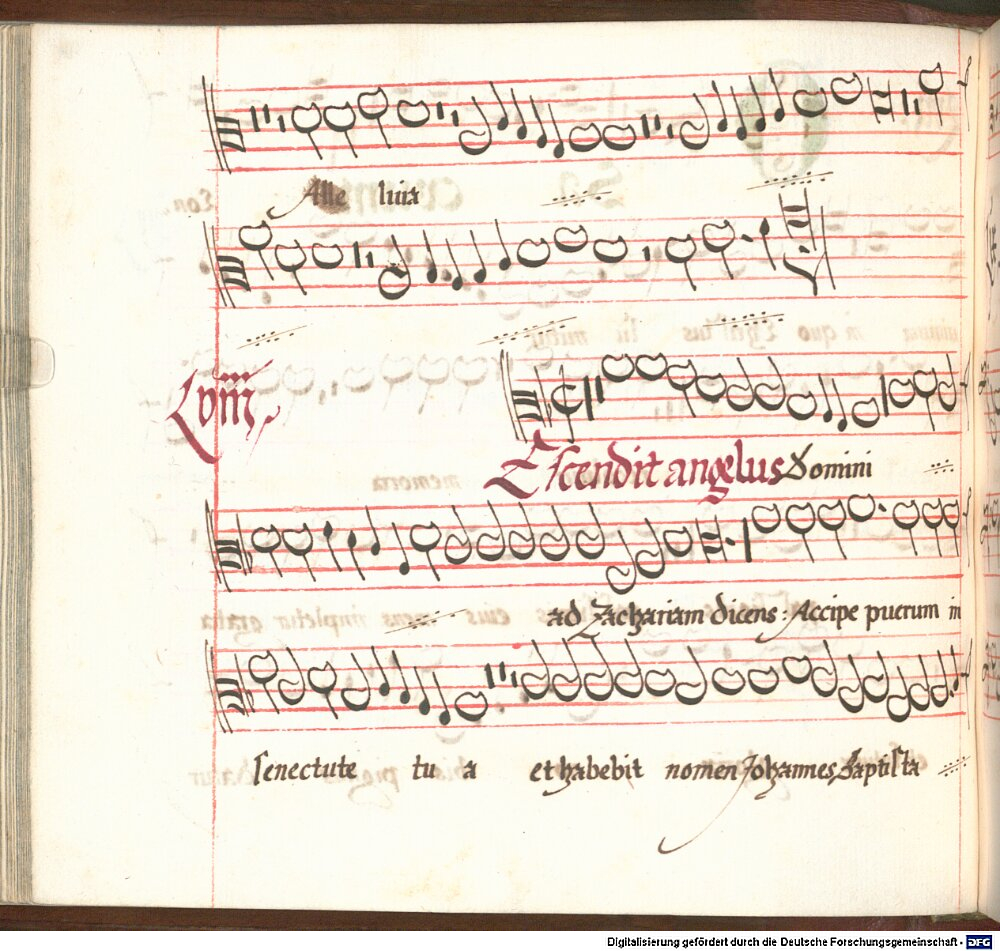 Alle luia
Lviij
Escendit angelus Domini
ad Zachariam dicens: Accipe puerum in
senectute tu a et habebit nomen Johannes Baptista
Digitalisierung gefördert durch die Deutsche Forschungsgemeinschaft - DFG